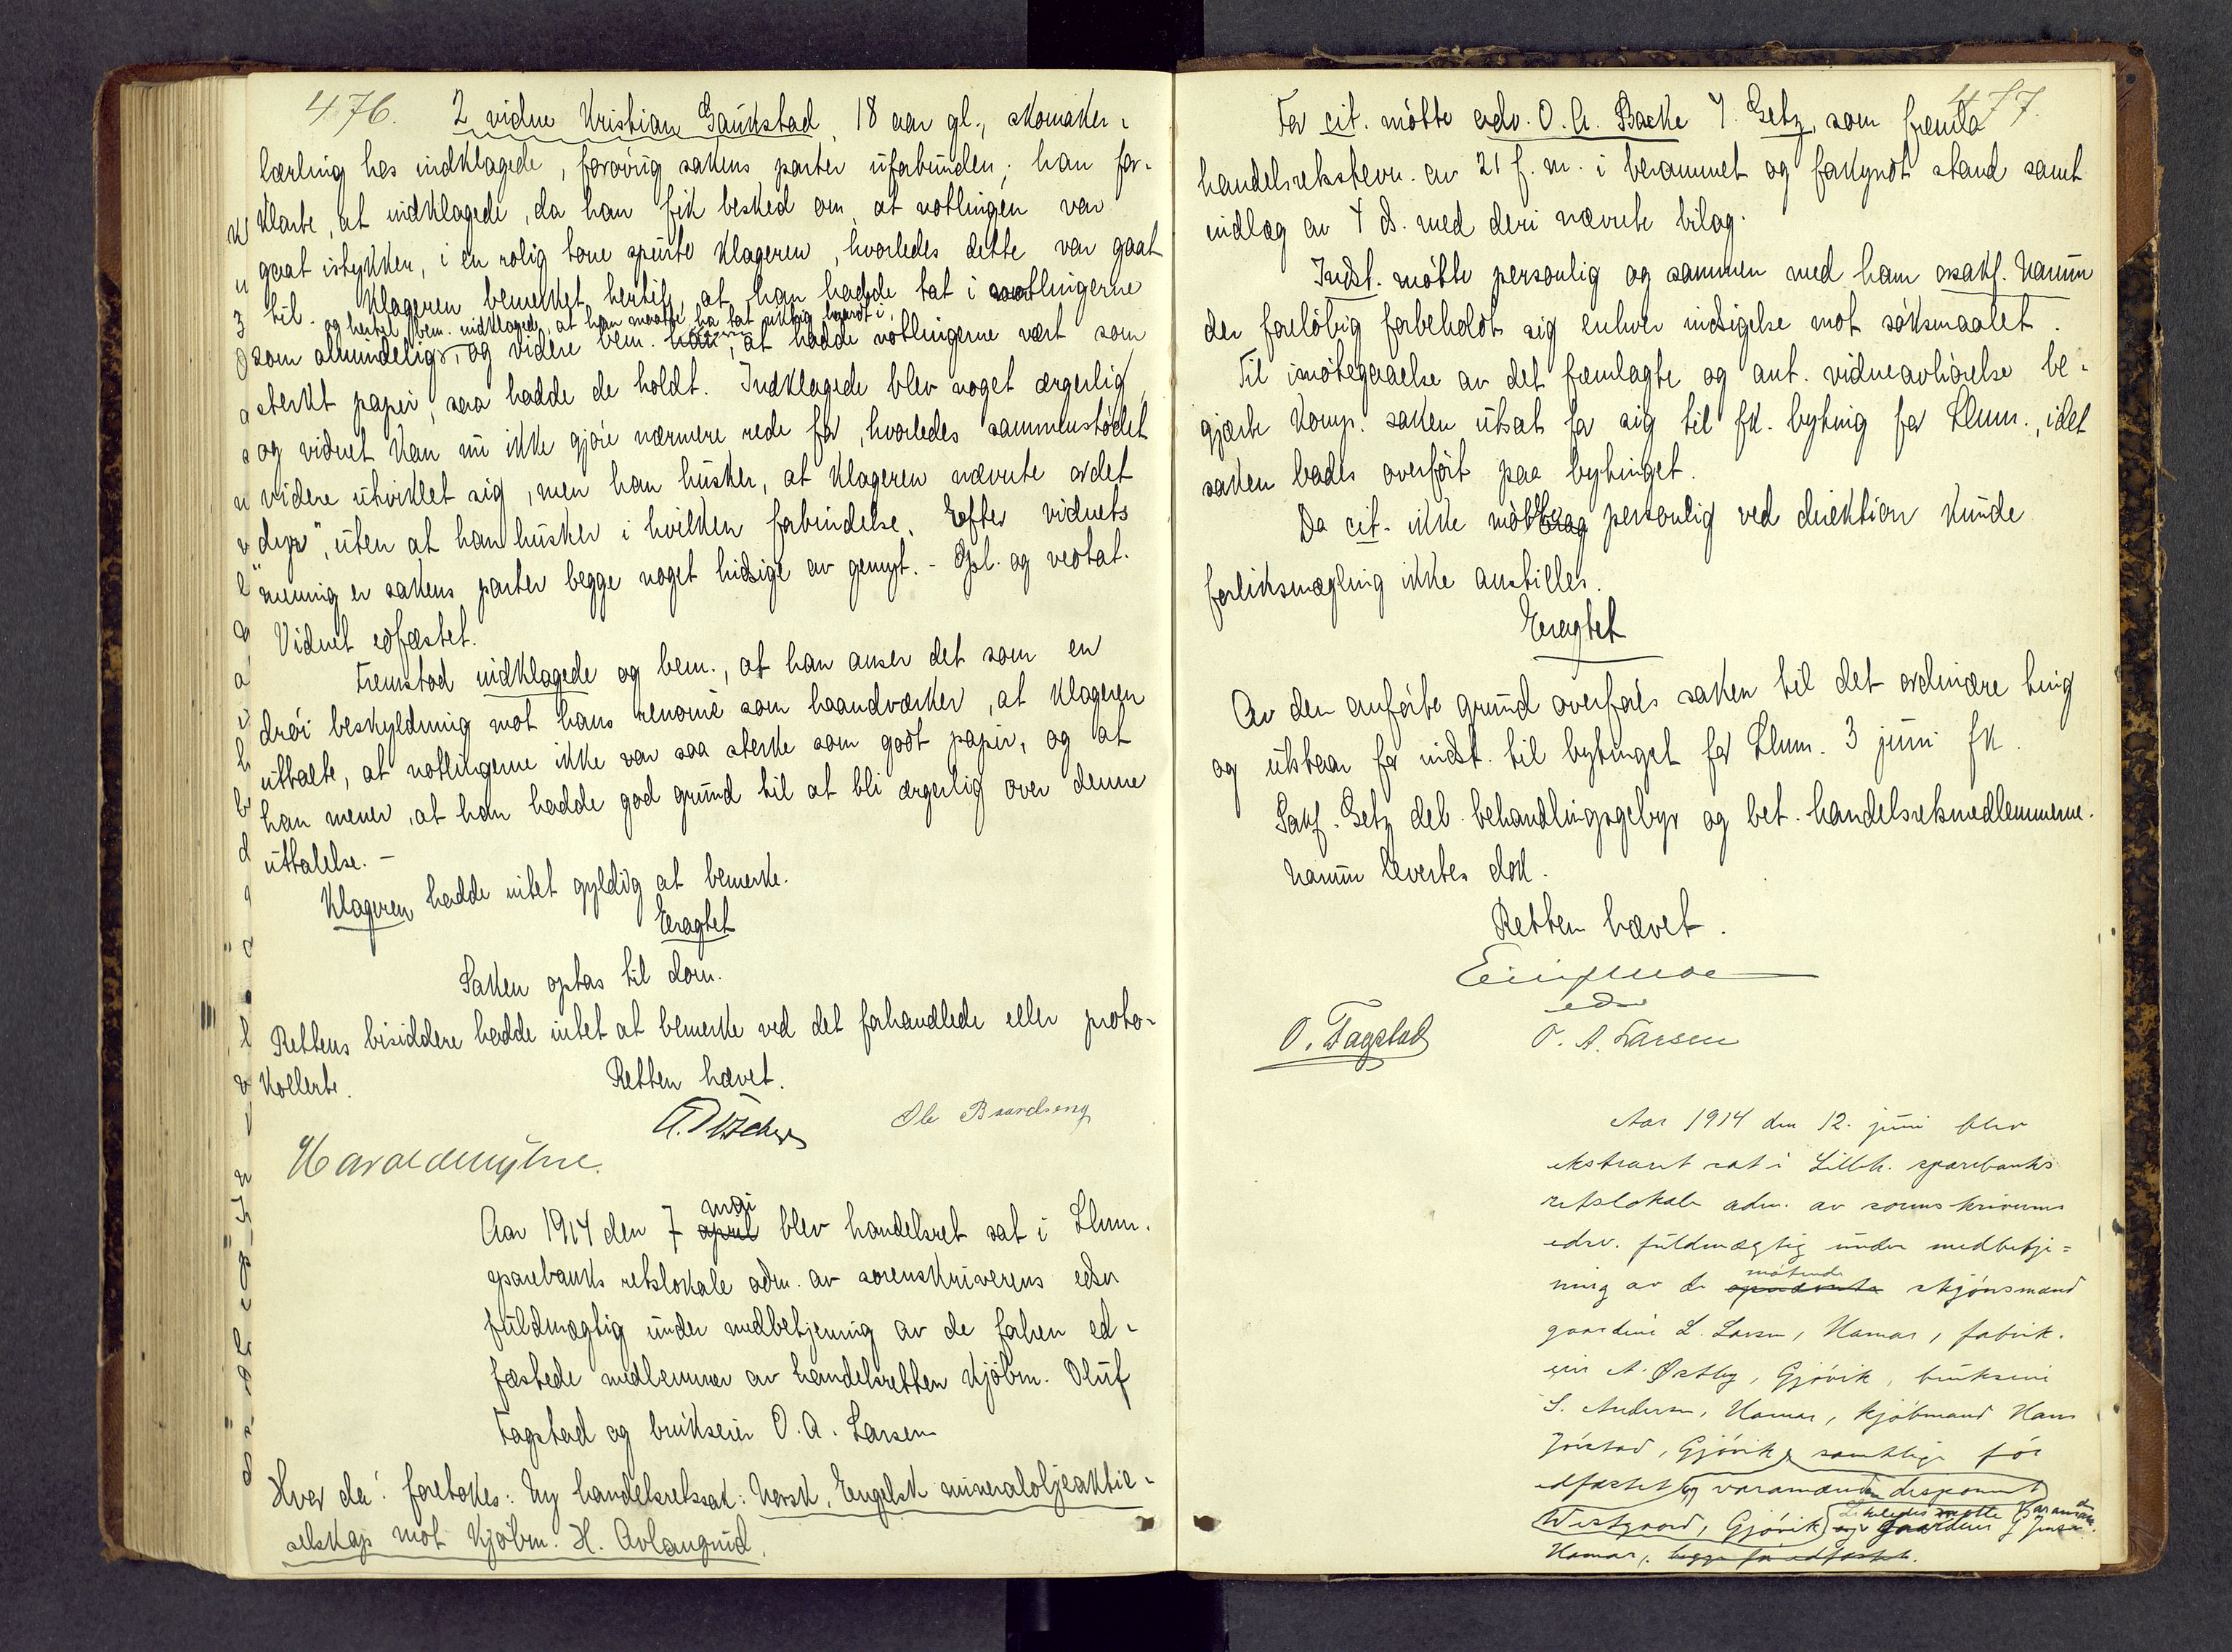 476.
2 vidne Kristian Gaukstad, 18 aar gl., skomaker-
lærling hos indklagede, forøvrig sakens parter uforbunden; han for-
klarte, at indklagede, da han fik besked om, at nötlingen var
gaat istykker, i en rolig tone spurte klageren, hvorledes dette var gaat
til. Klageren bemerket hertil, at han hadde tat i nötlingerne
og hertil bem. indklagede, at han maatte ha tat riktig haardt i,
som almindelig, og videre bem. han, at hadde nötlingerne vært som
sterkt papir, saa hadde de holdt. Indklagede blev noget ærgerlig,
og vidnet kan nu ikke gjöre nærmere rede for, hvorledes sammenstödet
videre utviklet sig, men han husker, at klageren nævnte ordet
"dyr", uten at han husker i hvilken forbindelse. Efter vidnets
mening er sakens parter begge noget hidsige av gemyt. - Opl. og vedtat.
Vidnet edfæstet.
Fremstod indklagede og bem., at han anser det som en
dröi beskyldning mot hans renomé som haandverker, at klageren
uttalte, at nötlingerne ikke var saa sterke som godt papir, og at
han mener, at han hadde god grund til at bli ærgerlig over denne
uttalelse. -
Klageren hadde intet gyldig at bemerke.
Eragtet
Saken optas til dom.
Rettens bisiddere hadde intet at bemerke ved det forhandlede eller proto-
kollerte.
Retten hævet.
Ole Baardseng
Harald
mai
Aar 1914 den 7 april blev handelsret sat i Llhm.
sparebanks retslokale adm. av sorenskriverens edsv
fuldmægtig under medbetjening av de forhen ed-
fæstede medlemmer av handelsretten kjöbm. Oluf
Fagstad og brukseier O. A. Larsen
Hvor da: foretokes: Ny handelsretssak: Norsk, Engelsk mineraloljeaktie-
selskap mot kjöbm. H. Avlangrud.
477.
For cit. mötte adv. O. A. Backe v. Getz, som fremla
handelsretsstevn. av 21 f. m. i berammet og forkyndt stand samt
indlæg av 4 ds. med deri nævnte bilag.
Indst. mötte personlig og sammen med ham osakf. Namm
der foreløbig forbeholdt sig enhver indsigelse mot söksmaalet.
Til imötegaaelse av det fremlagte og ant. vidneavhörelse be-
gjærte komp. saken utsat for sig til fk. byting for Llhm., idet
saken bades overfört paa bytinget.
Da cit. ikke mötte personlig ved direktion kunde
forliksmægling ikke anstilles.
Eragtet
Av den anførte grund overföres saken til det ordinære ting
og utstaar for indst. til bytinget for Llhm. 3 juni fk.
Sakf. Getz deb. behandlingsgebyr og bet. handelsretsmedlemmerne.
Namm levertes dok.
Retten hævet.
edsv
O. Fagstad
O. A. Larsen
Aar 1914 den 12. juni blev
ekstraret sat i Lilleh. sparebanks
retslokale adm. av sorenskriverens
edsv. fuldmægtig under medbetje=
mötende
ning av de opnævnte skjönsmænd
gaardeier L. Larsen, Hamar, fabrik-
eier A. Østby, Gjövik, brukseier
S. Andersen, Hamar, kjöbmand Hans
Jörstad, Gjövik, samtlige för
edfæstet og varamanden disponent
Westgaard, Gjövik, Likeledes mötte varamand
og gaardeier J. Jensen
Hamar, begge før edfæstet.